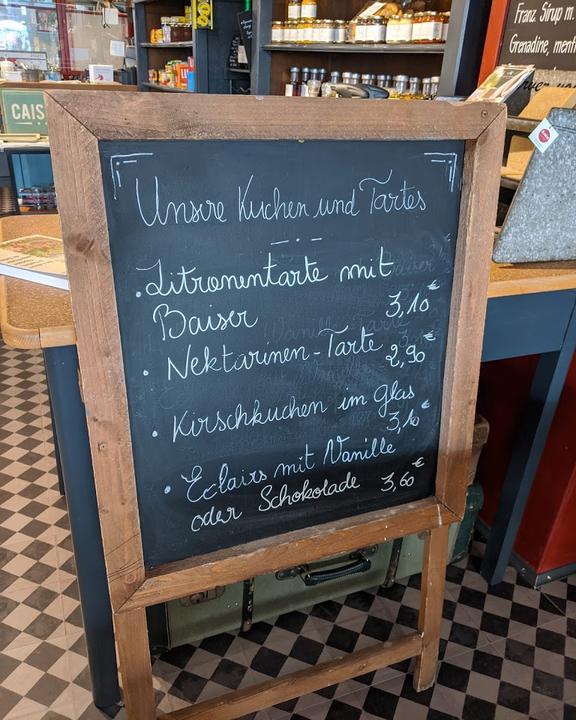 Unsere Kuchen und Tartes
• Zitronentarte mit
Baiser 3,10€
• Nektarinen-Tarte 2,90€
• Kirschkuchen im Glas
3,10€
• Eclairs mit Vanille
oder Schokolade 3,60€
CAIS
Franz Sirup m.
Grenadine,